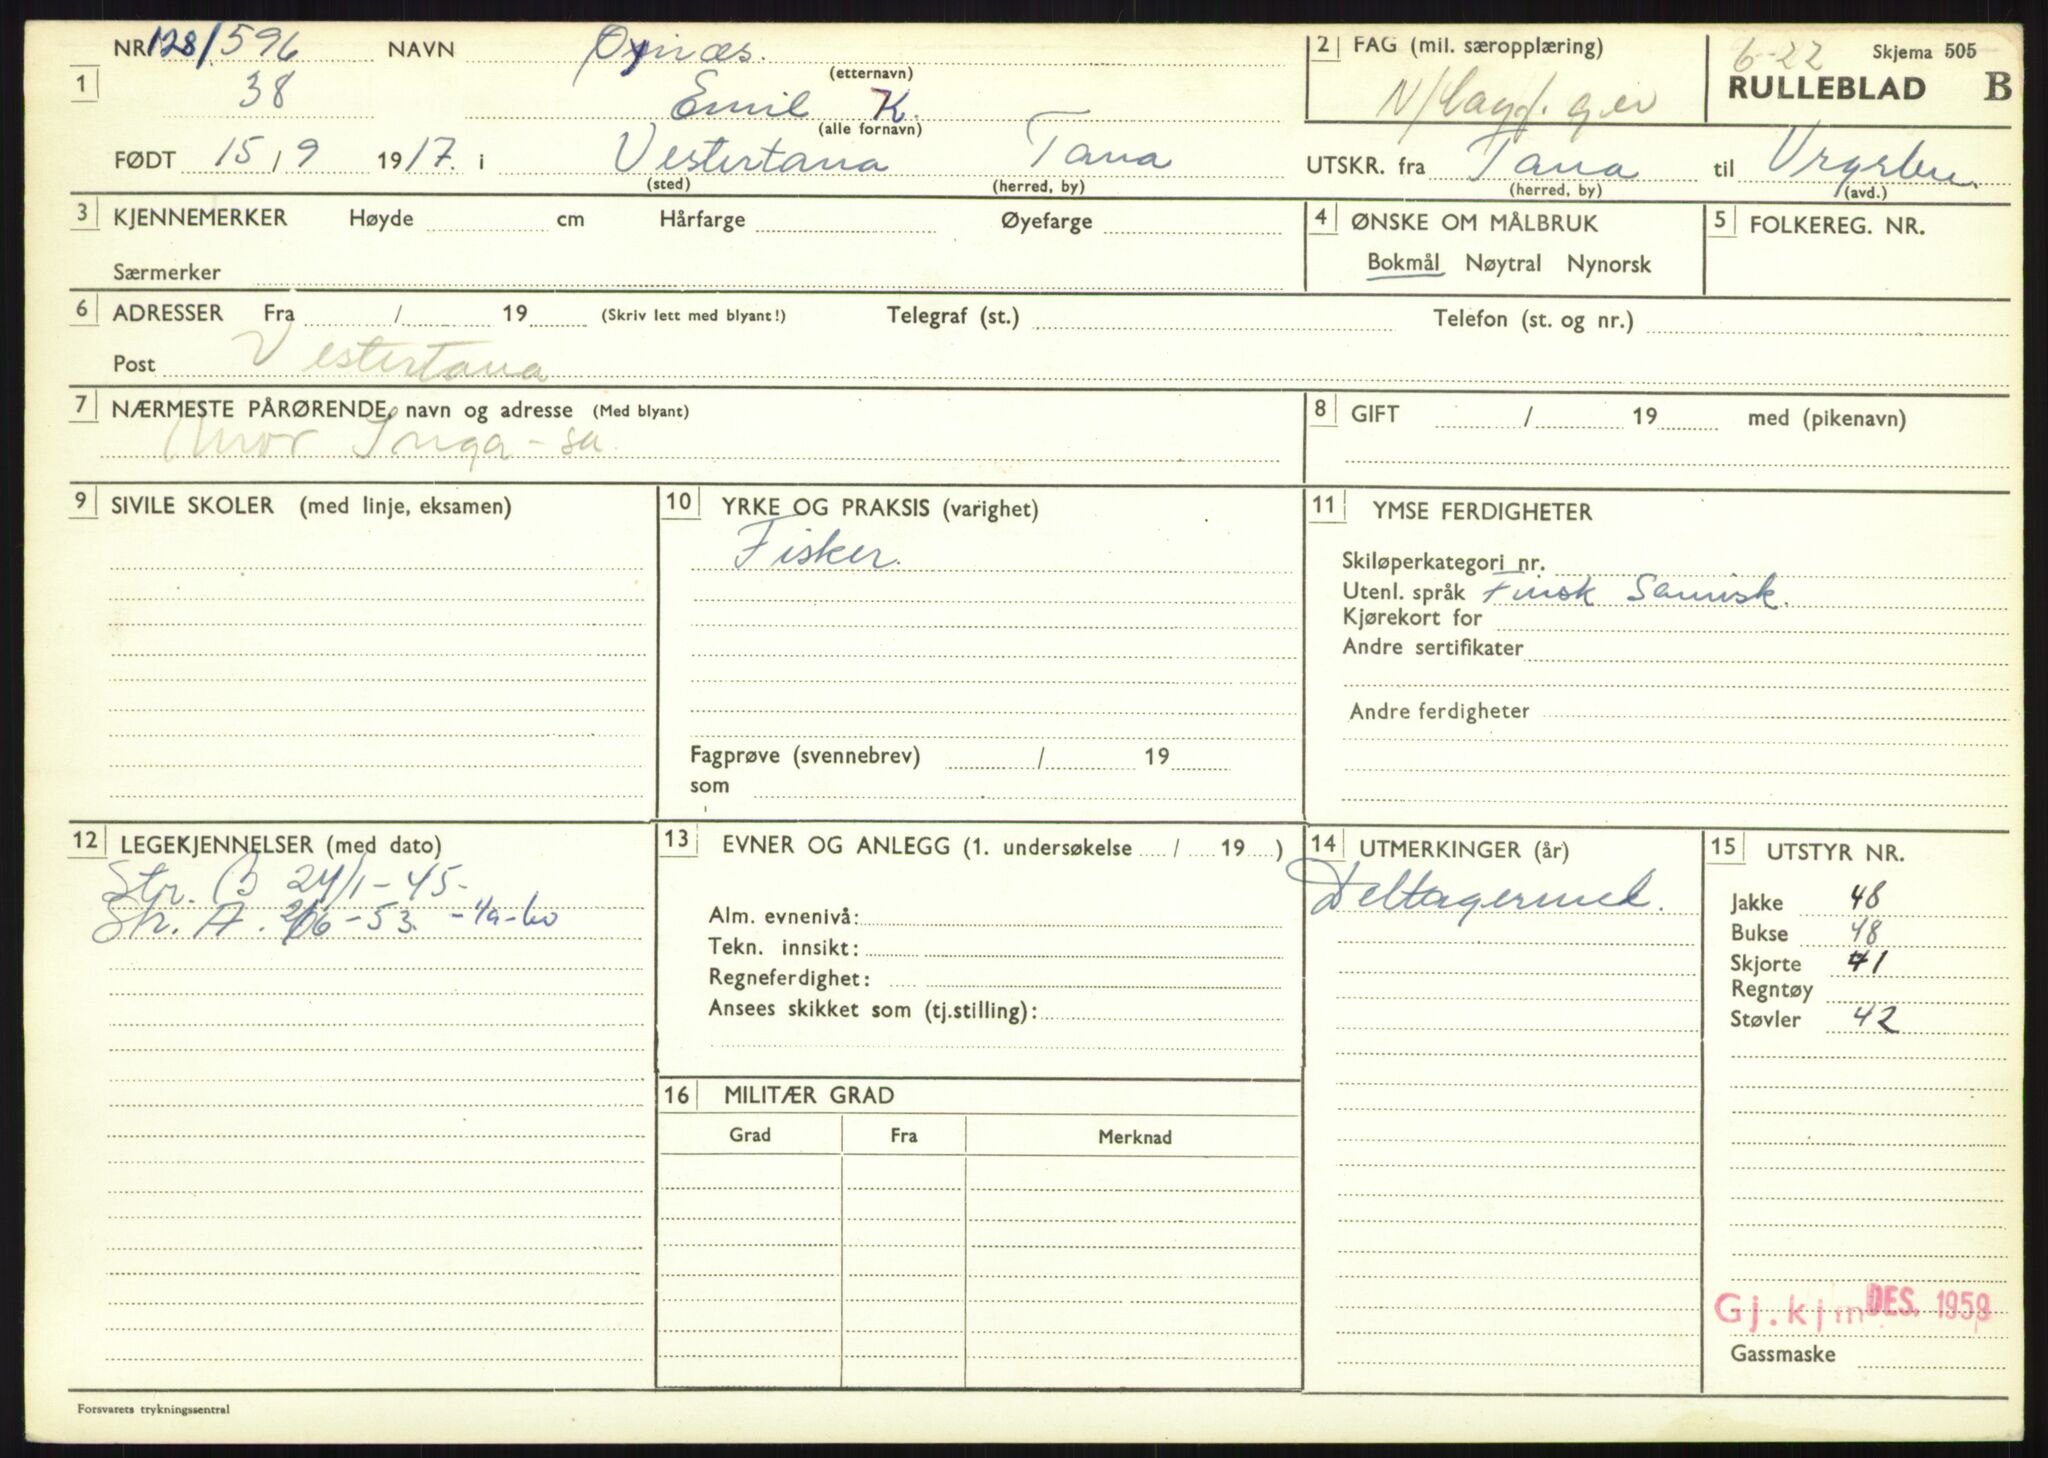 NR 128/596 NAVN (etternavn)
1 38 Emil K. (alle fornavn)
FØDT 15/9 1917. i Vestertana Tana
(sted) (herred, by)
2 FAG (mil. særopplæring)
6-22 Skjema 505
RULLEBLAD B
UTSKR. fra Tana til
(herred, by) (avd.)
3 KJENNEMERKER Høyde cm Hårfarge Øyefarge
Særmerker
4 ØNSKE OM MÅLBRUK
Bokmål Nøytral Nynorsk
5 FOLKEREG. NR.
6 ADRESSER Fra / 19 (Skriv lett med blyant!) Telegraf (st.) Telefon (st. og nr.)
Post Vestertana
7 NÆRMESTE PÅRØRENDE, navn og adresse (Med blyant)
Mor Inga - sa.
8 GIFT / 19 med (pikenavn)
9 SIVILE SKOLER (med linje, eksamen)
10 YRKE OG PRAKSIS (varighet)
Fisker.
Fagprøve (svennebrev) / 19
som
11 YMSE FERDIGHETER
Skiløperkategori nr.
Utenl. språk Finsk Samisk.
Kjørekort for
Andre sertifikater
Andre ferdigheter
12 LEGEKJENNELSER (med dato)
Str. B 24/1-45-
Str. A. 2/6-53.
13 EVNER OG ANLEGG (1. undersøkelse / 19 )
Alm. evnenivå:
Tekn. innsikt:
Regneferdighet:
Ansees skikket som (tj.stilling):
14 UTMERKINGER (år)
Deltagermed.
15 UTSTYR NR.
Jakke 48
Bukse 48
Skjorte 41
Regntøy
Støvler 42
Gj.kjm DES. 1959
Gassmaske
16 MILITÆR GRAD
Grad Fra Merknad
Forsvarets trykningssentral